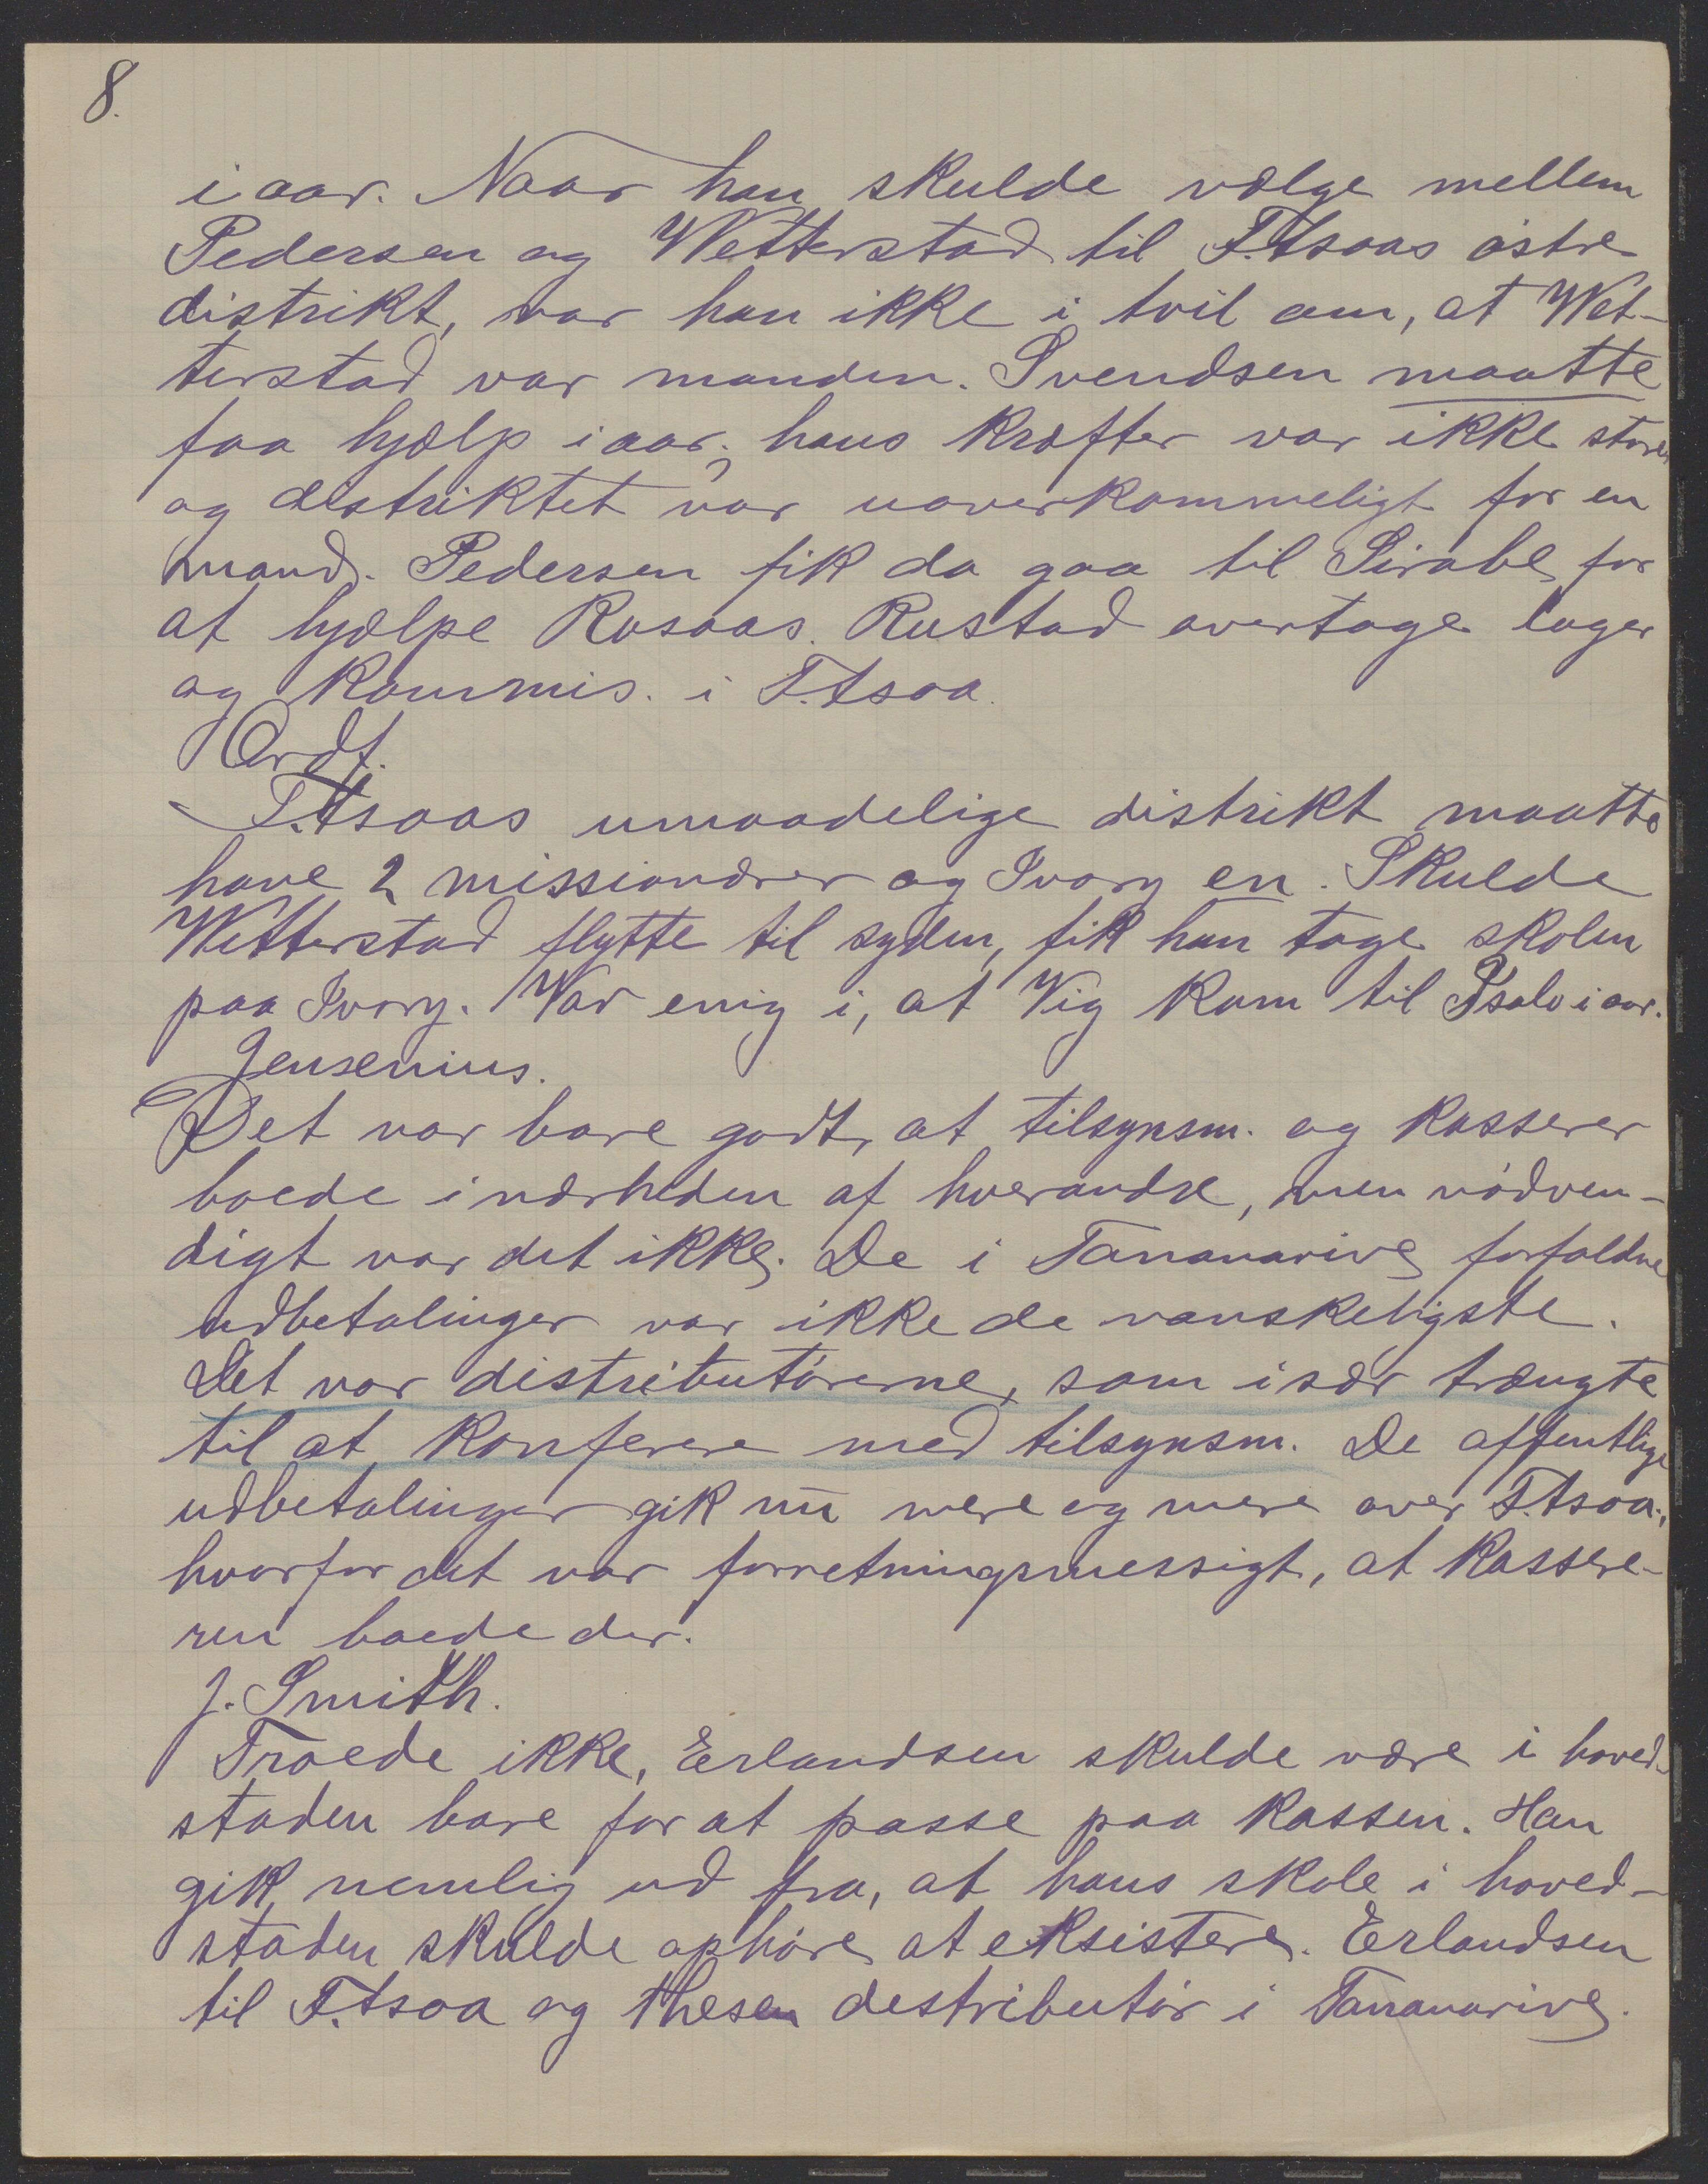 8.
i aar. Naar han skulde vælge mellem
Pedersen og Wetterstad til F.tsoas østre
distrikt, var han ikke i tvil om, at Wet-
terstad var manden. Svendsen maatte
faa hjælp i aar; hans kræfter var ikke store
og distriktet var uoverkommeligt for en
mand. Pedersen fik da gaa til Sirabe for
at hjælpe Rosaas. Rustad overtage lager
og kommis. i F.tsoa.
Ordf.
F.tsoas umaadelige distrikt maatte
have 2 missionærer og Ivory en. Skulde
Wetterstad flytte til syden, fik han tage skolen
paa Ivory. Var enig i, at Vig kom til Tsalo i aar.
Jensenius.
Det var bare godt, at tilsynsm. og kasserer
boede i nærheden af hverandre, men nødven-
digt var det ikke. De i Tananarive forfaldne
udbetalinger var ikke de vanskeligste.
Det var distributørerne, som især trængte
til at konferere med tilsynsm. De offentlige
udbetalinger gik nu mere og mere over F.tsoa,
hvorfor det var forretningsmessigt, at kassere-
ren boede der.
J. Smith.
Troede ikke, Erlandsen skulde være i hoved-
staden bare for at passe paa kassen. Han
gik nemlig ud fra, at hans skole i hoved-
staden skulde ophøre at eksistere. Erlandsen
til F.tsoa og Thesen destributør i Tananarive.